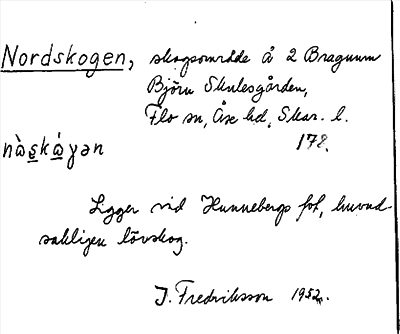 Nordskogen, skogsområde å 2 Bragnum
Björn Skulesgården,
Flo sn, Åse hd, Skar. l.
178.
nὰskάγən
Ligger vid Hunnebergs fot, huvud-
sakligen lövskog.
J. Fredriksson 1952.